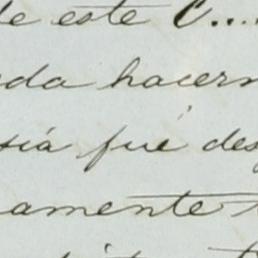 de este C....
da hacern
sía fué des
amente